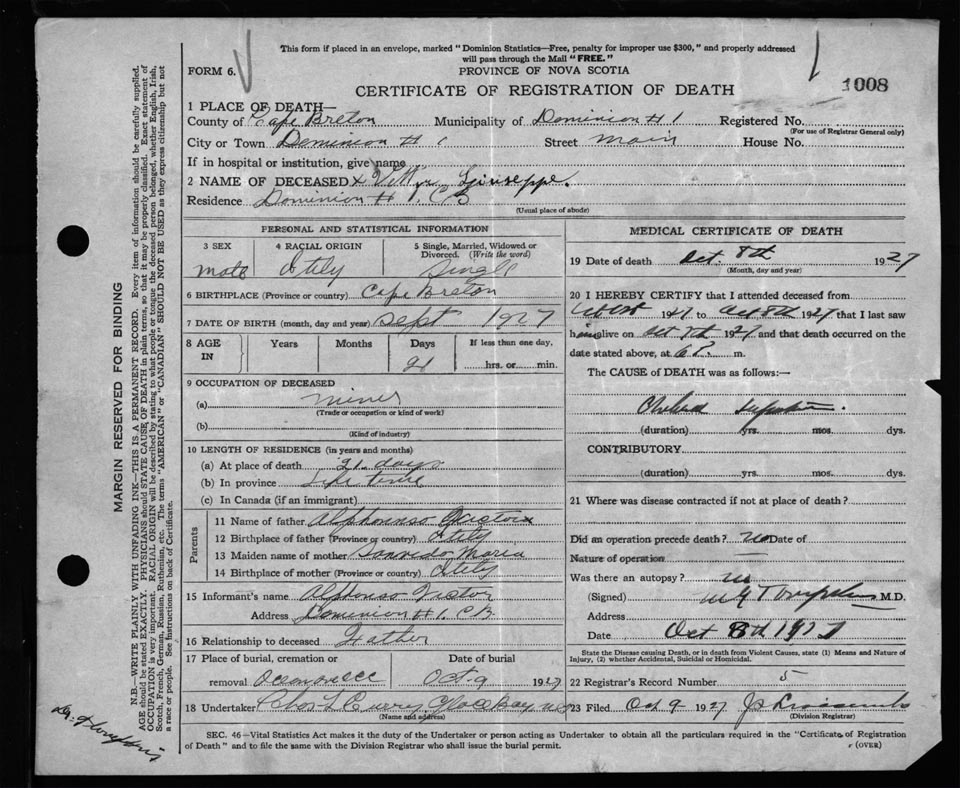 This form if placed in an envelope, marked "Dominion Statistics—Free, penalty for improper use $300," and properly addressed
will pass through the Mail "FREE."
FORM 6.
PROVINCE OF NOVA SCOTIA
CERTIFICATE OF REGISTRATION OF DEATH
1008
1 PLACE OF DEATH—
County of Cape Breton Municipality of Dominion # 1 Registered No.
(For use of Registrar General only)
City or Town Dominion # 1 Street Main House No.
If in hospital or institution, give name
2 NAME OF DECEASED x Giuseppe.
Residence Dominion # 1. C B
(Usual place of abode)
PERSONAL AND STATISTICAL INFORMATION
3 SEX
4 RACIAL ORIGIN
5 Single, Married, Widowed or Divorced. (Write the word)
Male
Itily
Single
6 BIRTHPLACE (Province or country) Cape Breton
7 DATE OF BIRTH (month, day and year) Sept 1927
8 AGE IN
Years Months Days If less than one day,
21 hrs. or min.
9 OCCUPATION OF DECEASED
(a)
(Trade or occupation or kind of work)
(b)
(Kind of industry)
10 LENGTH OF RESIDENCE (in years and months)
(a) At place of death 21 days
(b) In province Life time
(c) In Canada (if an immigrant)
Parents
11 Name of father Alphonso
12 Birthplace of father (Province or country) Itily
13 Maiden name of mother Maria
14 Birthplace of mother (Province or country) Itily
15 Informant's name Alphonso Victor
Address Dominion # 1. C B
16 Relationship to deceased Father
17 Place of burial, cremation or removal
Date of burial
Oct 9 1927
18 Undertaker Chas L Curry Glace Bay N S
(Name and address)
MEDICAL CERTIFICATE OF DEATH
19 Date of death Oct. 8th 1927
(Month, day and year)
20 I HEREBY CERTIFY that I attended deceased from
1927 to Oct 8th 1927 that I last saw
him alive on Oct 7th 1927 and that death occurred on
date stated above, at 6 P. m.
The CAUSE of DEATH was as follows:—
(duration) yrs. mos. dys.
CONTRIBUTORY
(duration) yrs. mos. dys.
21 Where was disease contracted if not at place of death?
Did an operation precede death? no Date of
Nature of operation —
Was there an autopsy? no
(Signed) M.D.
Address
Date Oct 8th 1927
State the Disease causing Death, or in death from Violent Causes, state (1) Means and Nature of
Injury, (2) whether Accidental, Suicidal or Homicidal.
22 Registrar's Record Number 5
23 Filed Oct 9 1927
(Division Registrar)
SEC. 46—Vital Statistics Act makes it duty of the Undertaker or person acting as Undertaker to obtain all the particulars required in the "Certificate of Registration
of Death" and to file the same with the Division Registrar who shall issue the burial permit.
(OVER)
MARGIN RESERVED FOR BINDING
N.B.—WRITE PLAINLY WITH UNFADING INK—THIS IS A PERMANENT RECORD. Every item of information should be carefully supplied.
AGE should be stated EXACTLY. PHYSICIANS should STATE CAUSE OF DEATH in plain terms, so that it may be properly classified. Exact statement of
OCCUPATION is very important. RACIAL ORIGIN will be described by stating to what people or tongue the deceased person belonged, whether English, Irish,
Scotch, French, German, Russian, Ruthenian, etc. The terms "AMERICAN" or "CANADIAN" SHOULD NOT BE USED as they express citizenship but not
a race or people. See instructions on back of Certificate.